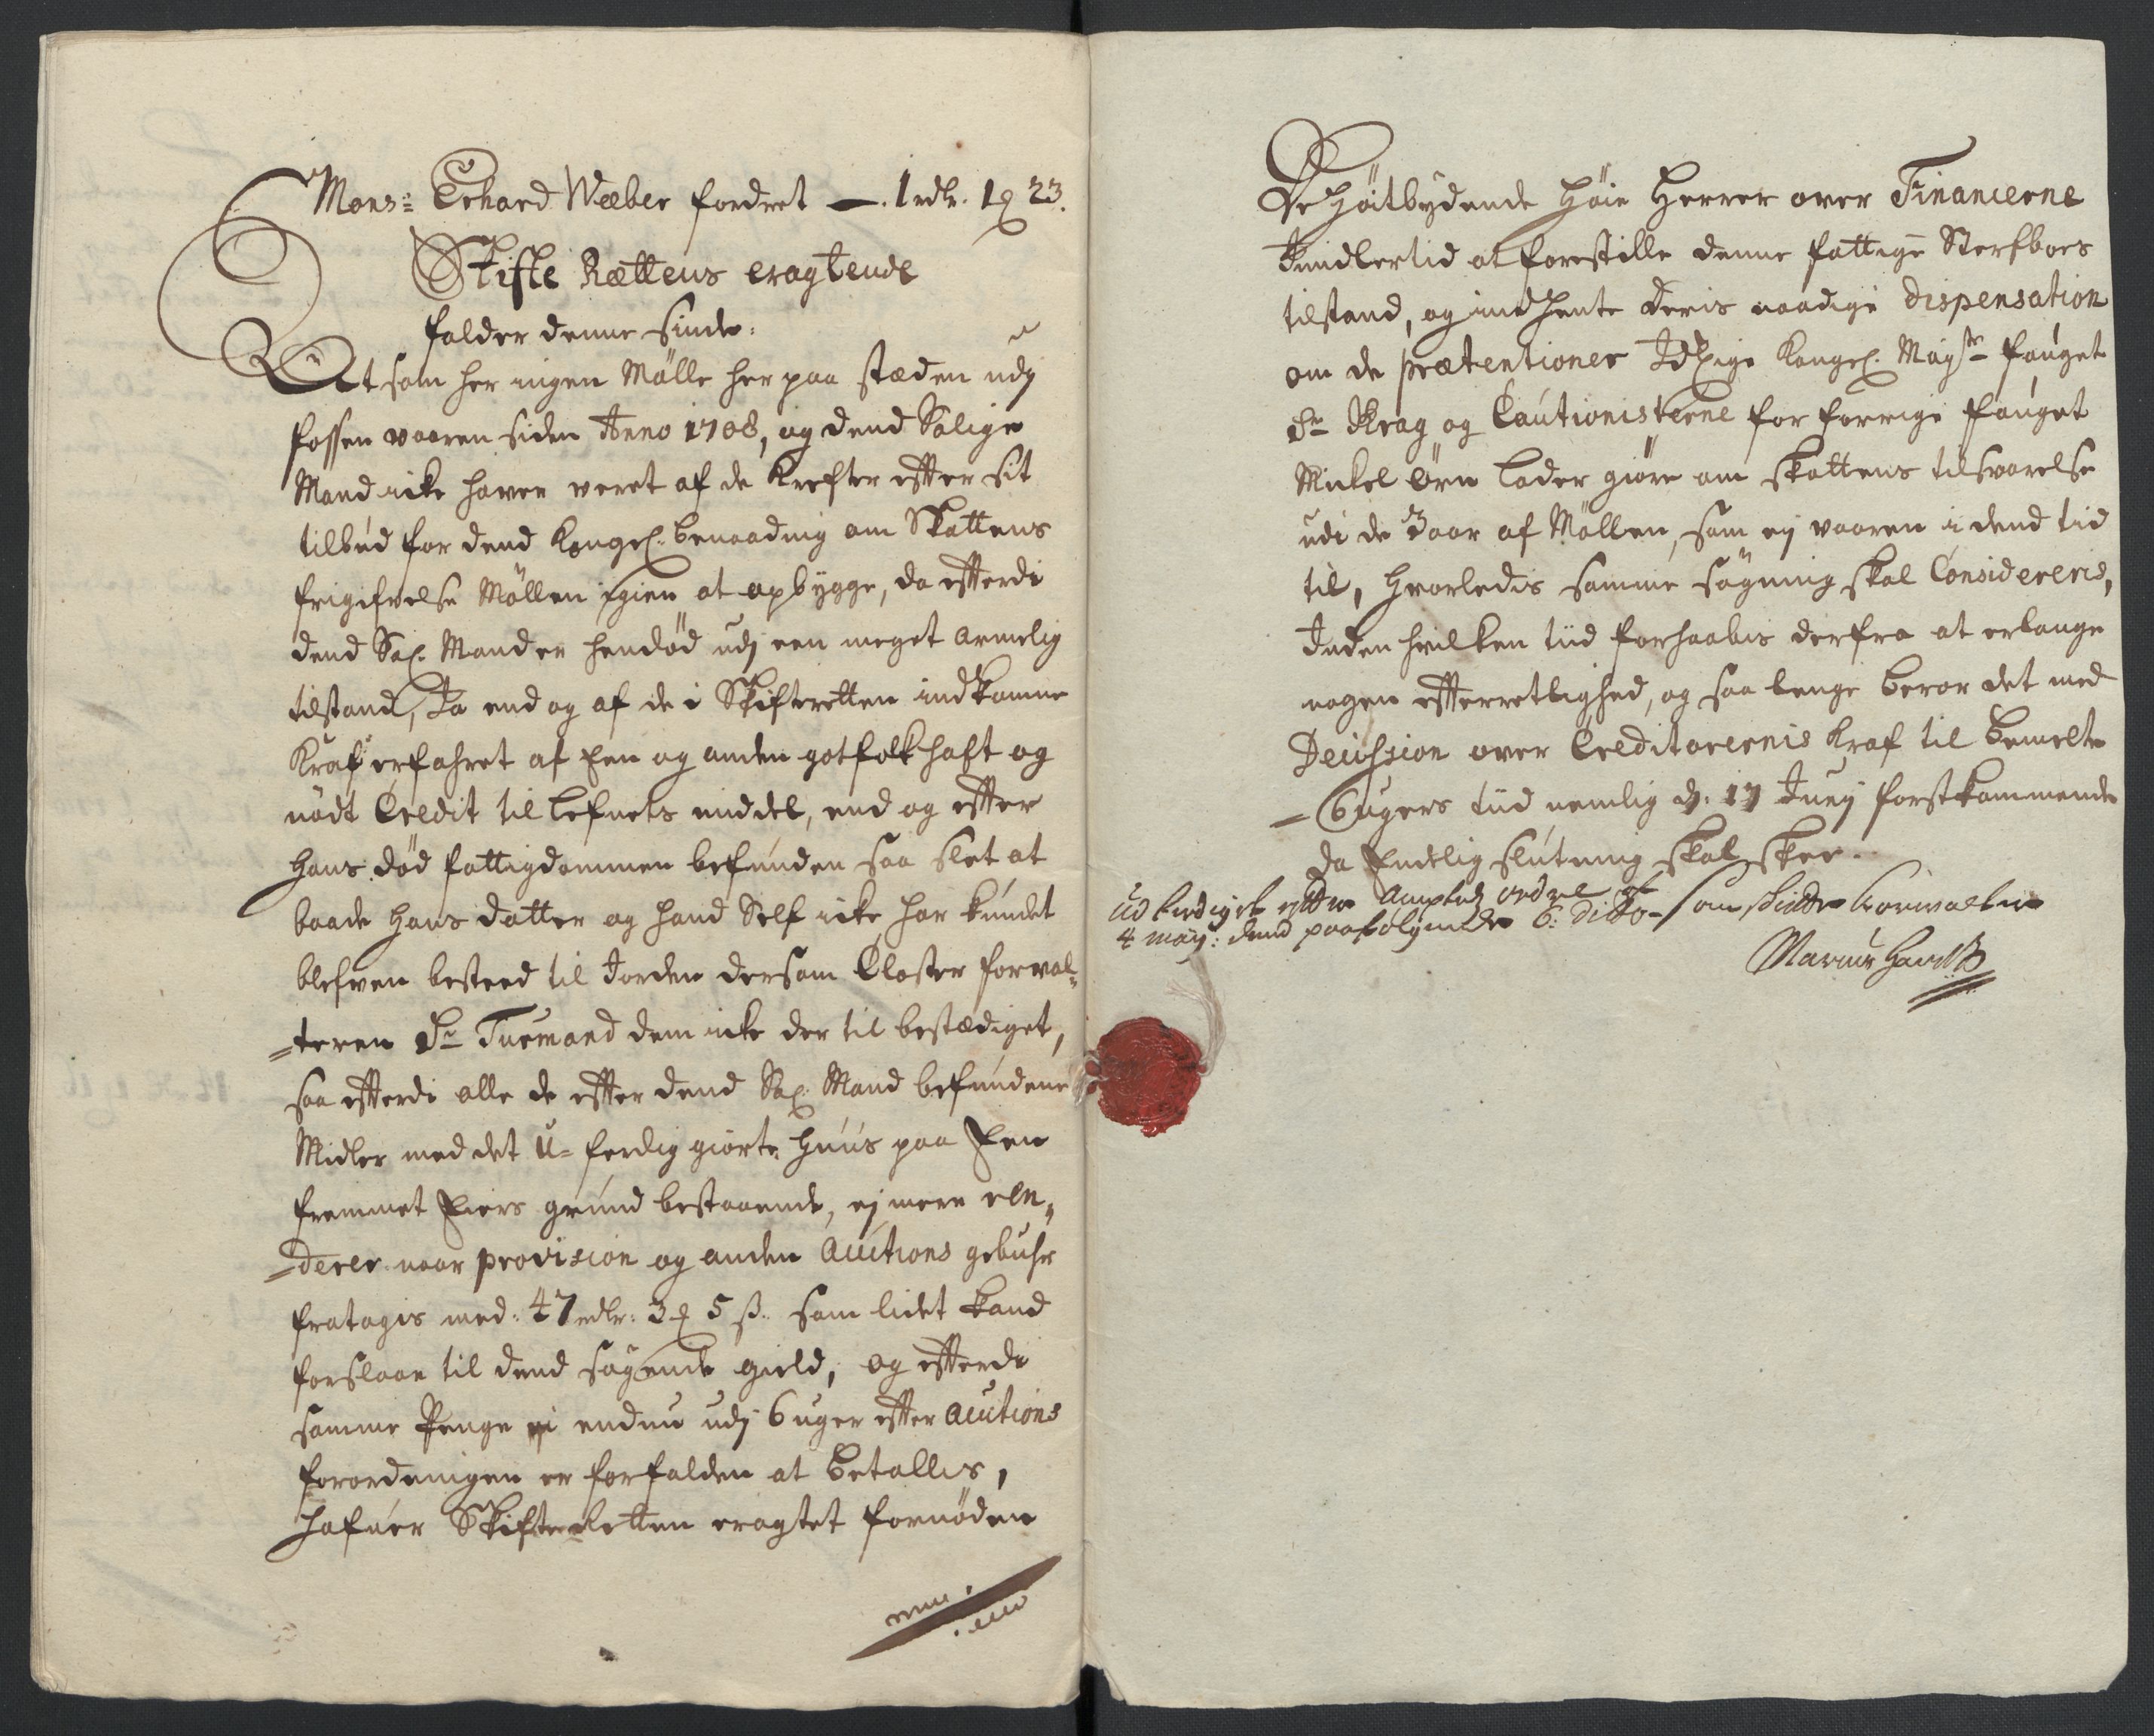 Mons: Erhard Wæber fordret — . 1 rdlr. 1 ꝶ 23.
Skifte Rættens eragtende
falder denne sinde:
At som her ingen Mölle her paa stæden udj
fossen vaaren siden Anno 1708, og dend Salige
Mand icke haver veret af de Krefter effter sit
tilbud for dend Kongel: benaading om Skattens
frigifvelse Möllen igien at opbygge, da effterdi
dend Sal. Mand er hendöd udj een meget armelig
tilstand, Ja end og af de i Skifteretten indkomne
Kraf erfahret af Een og anden gotfolk haft og
nödt Credit til Lefnets middel, end og effter
Hans död fattigdommen befunden saa slet at
baade Hans datter og Hand Self icke har kundet
blefven bested til Jorden dersom Closter forval-
teren Sr Tuemand dem icke der til bestædiget,
saa effterdi alle de effter dend Sal. Mand befundene
Midler med det U-ferdig giorte Huus paa Een
fremmet Eiers grund bestaaende, ej mere ren-
derer naar provision og anden Auctions gebuhr
fratagis med: 47 rdlr: 3 ꝶ 5 ß. som lidet kand
forslaae til dend søgende gield, og effterdi
samme Penge ei endnu udj 6 uger effter Auctions
forordningen er forfalden at betallis,
hafuer Skifte Retten eragtet fornöden
De Höitbydende Höie Herrer over Financerne
Imidlertid at forestille denne fattige Sterfboes
tilstand, og indhente Deris naadige dispensation
om de prætentioner Kongel. Mayst. fouget
Sr Krag og Cautionisterne for forrige fouget
Mickel Örn lader giöre om skattens tilsvarelse
udi de 3 aar af Möllen, som ej vaaren i dend tid
til, Hvorledis samme sögning skal Considereris,
Inden hvilken tiid forhaabis derfra at erlange
nogen effterretlighed, og saa lenge beror det med
Decission over Creditorernis Kraf til bemelte
6 ugers tiid nemlig d: 17 Junij forstkommende
da Endelig slutning skal skee.
Udferdiget effter Amptets ordre af
4 maij: dend paafølgende 6: dito - som skiffte forvalter